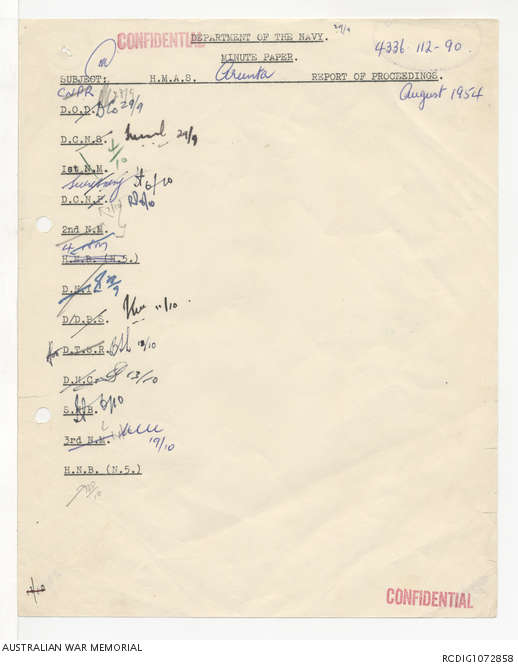 CONFIDENTIAL
DEPARTMENT OF THE NAVY.
29/9
MINUTE PAPER.
4336-112-90.
SUBJECT: H.M.A.S. Arunta REPORT OF PROCEEDINGS.
August 1954
CNPR 23/9
D.O.D. 29/9
D.C.N.S. 29/9
1/10
1st N.M.
Secretary 6/10
D.C.N.P. 6/10
2nd N.M.
4th NM
H.N.B. (N.5.)
D.N.I.
D/D.B.S. 11/10
for D.T.S.R. 13/10
D.N.C. 13/10
S.N.B. 6/10
3rd N.M.
19/10
H.N.B. (N.5.)
CONFIDENTIAL
AUSTRALIAN WAR MEMORIAL
RCDIG1072858